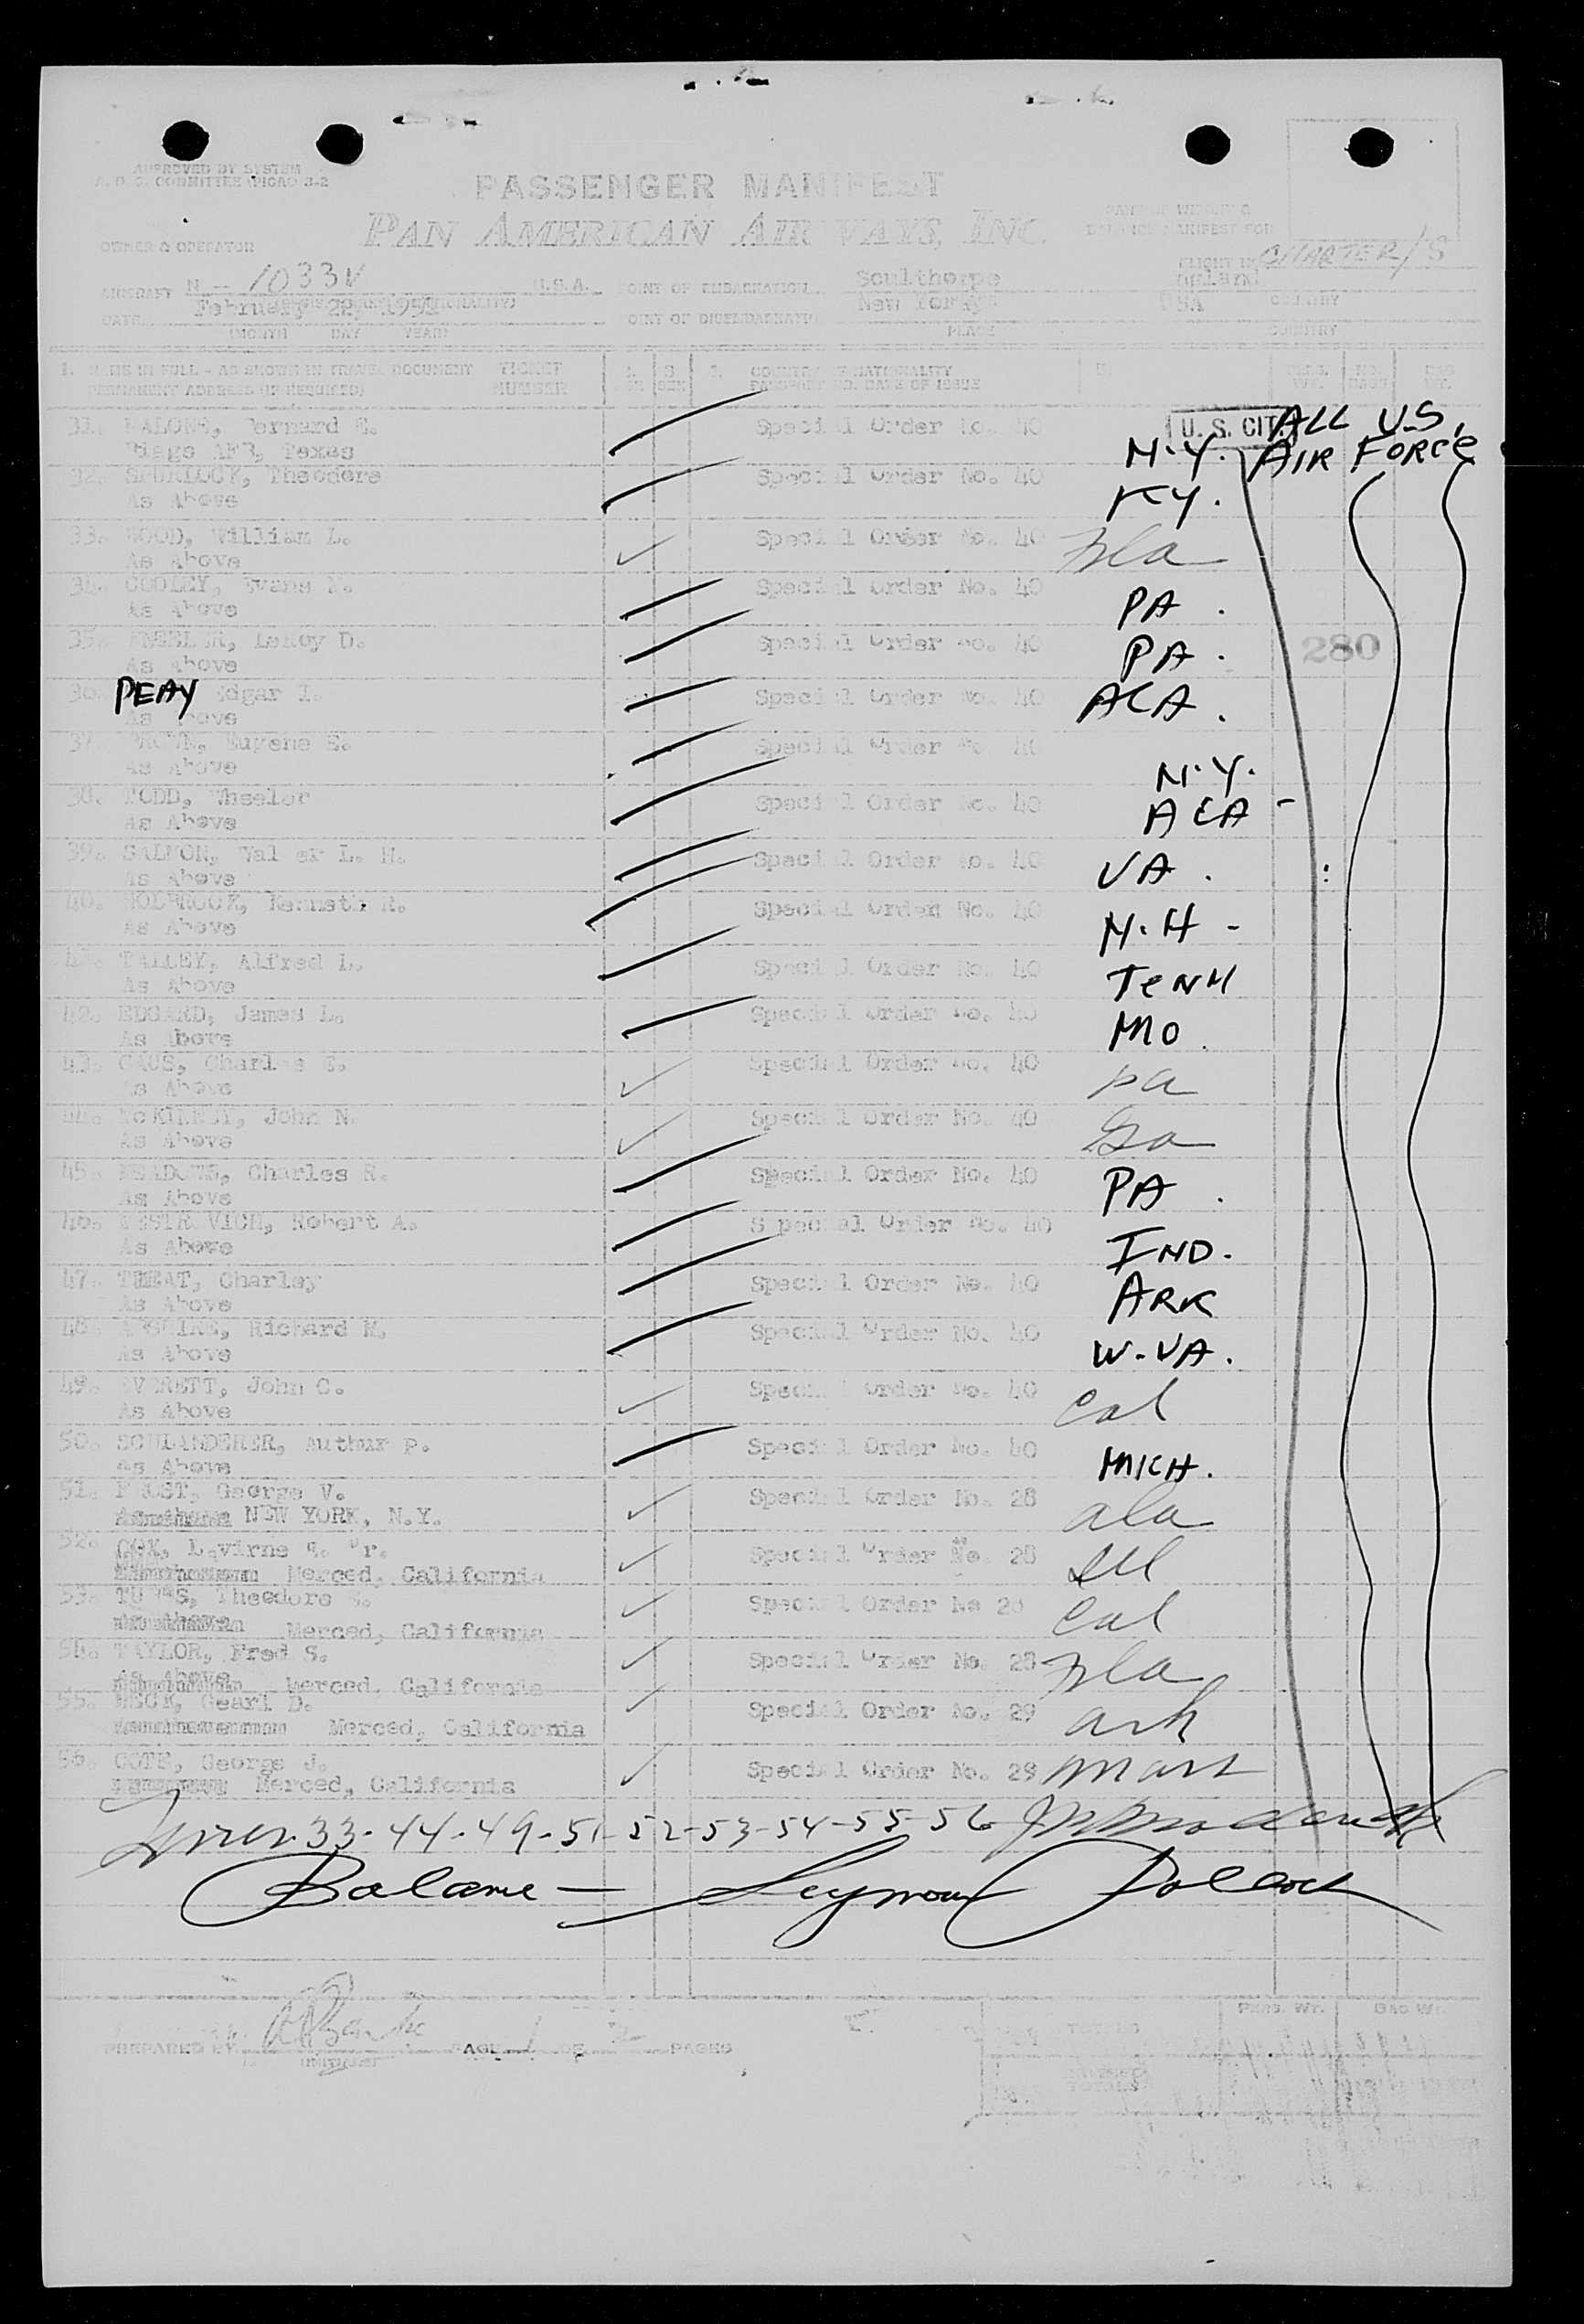 APPROVED BY SYSTEM
A.D.C. COMMITTEE (PICAO 3-2
PASSENGER MANIFEST
PAN AMERICAN AIRWAYS, INC.
OWNER & OPERATOR
BALANCE MANIFEST FOR
FLIGHT CHARTER/S
AIRCRAFT N - 1033V U.S.A. POINT OF EMBARKATION Sculthorpe England
DATE February 22, 195 POINT OF DISEMBARKATION New York USA
(MONTH DAY YEAR) PLACE COUNTRY
1. NAME IN FULL - AS SHOWN IN TRAVEL DOCUMENT TICKET COUNTRY OF NATIONALITY
PERMANENT ADDRESS (IF REQUIRED) NUMBER SEX PASSPORT NO. DATE OF ISSUE
U. S. CIT. ALL U.S.
AIR FORCE
31. Bernard Special Order No. 40 N.Y.
Biggs AFB, Texas
32. SPURLOCK, Theodore Special Order No. 40 KY.
As Above
33. WOOD, William L. Special Order No. 40 Fla
As Above
34. COOLEY, Evans Special Order No. 40 PA.
As Above
35. LeRoy D. Special Order No. 40 PA. 280
As Above
36. PEAY Edgar Special Order No. 40 ALA.
As Above
37. BROWN, Eugene S. Special Order No. 40 N.Y.
As Above
38. TODD, Wheeler Special Order No. 40 ALA -
As Above
39. SALMON, Walter L. H. Special Order No. 40 VA.
As Above
40. HOLBROOK, Kenneth R. Special Order No. 40 N.H -
As Above
41. TALLEY, Alfred L. Special Order No. 40 TENN
As Above
42. EDGARD, James L. Special Order No. 40 MO.
As Above
43. Charles Special Order No. 40 pa
As Above
44. McKINNEY, John N. Special Order No. 40 Ga
As Above
45. MEADOWS, Charles R. Special Order No. 40 PA.
As Above
46. Robert A. Special Order No. 40 IND.
As Above
47. TREAT, Charley Special Order No. 40 ARK
As Above
48. Richard M. Special Order No. 40 W-VA.
As Above
49. EVERETT, John C. Special Order No. 40 Cal
As Above
50. SCHLANDERER, Authur P. Special Order No. 40 MICH.
As Above
51. George V. Special Order No. 28 ala
NEW YORK, N.Y.
52. COX, Lavirne Jr. Special Order No. 28 Ill
Merced, California
53. Theodore Special Order No 28 Cal
As Above Merced, California
54. TAYLOR, Fred S. Special Order No. 28 Fla
As Above Merced, California
55. BECK, Gearl D. Special Order No. 29 ark
Merced, California
56. COTE, George J. Special Order No. 29 Mass
Merced, California
33-44-49-51-52-53-54-55-56
Balance — Seymour Pollock
PERS. WT. BAG WT.
PREPARED BY PAGE 1 OF 2 PAGES
TOTALS
TOTALS